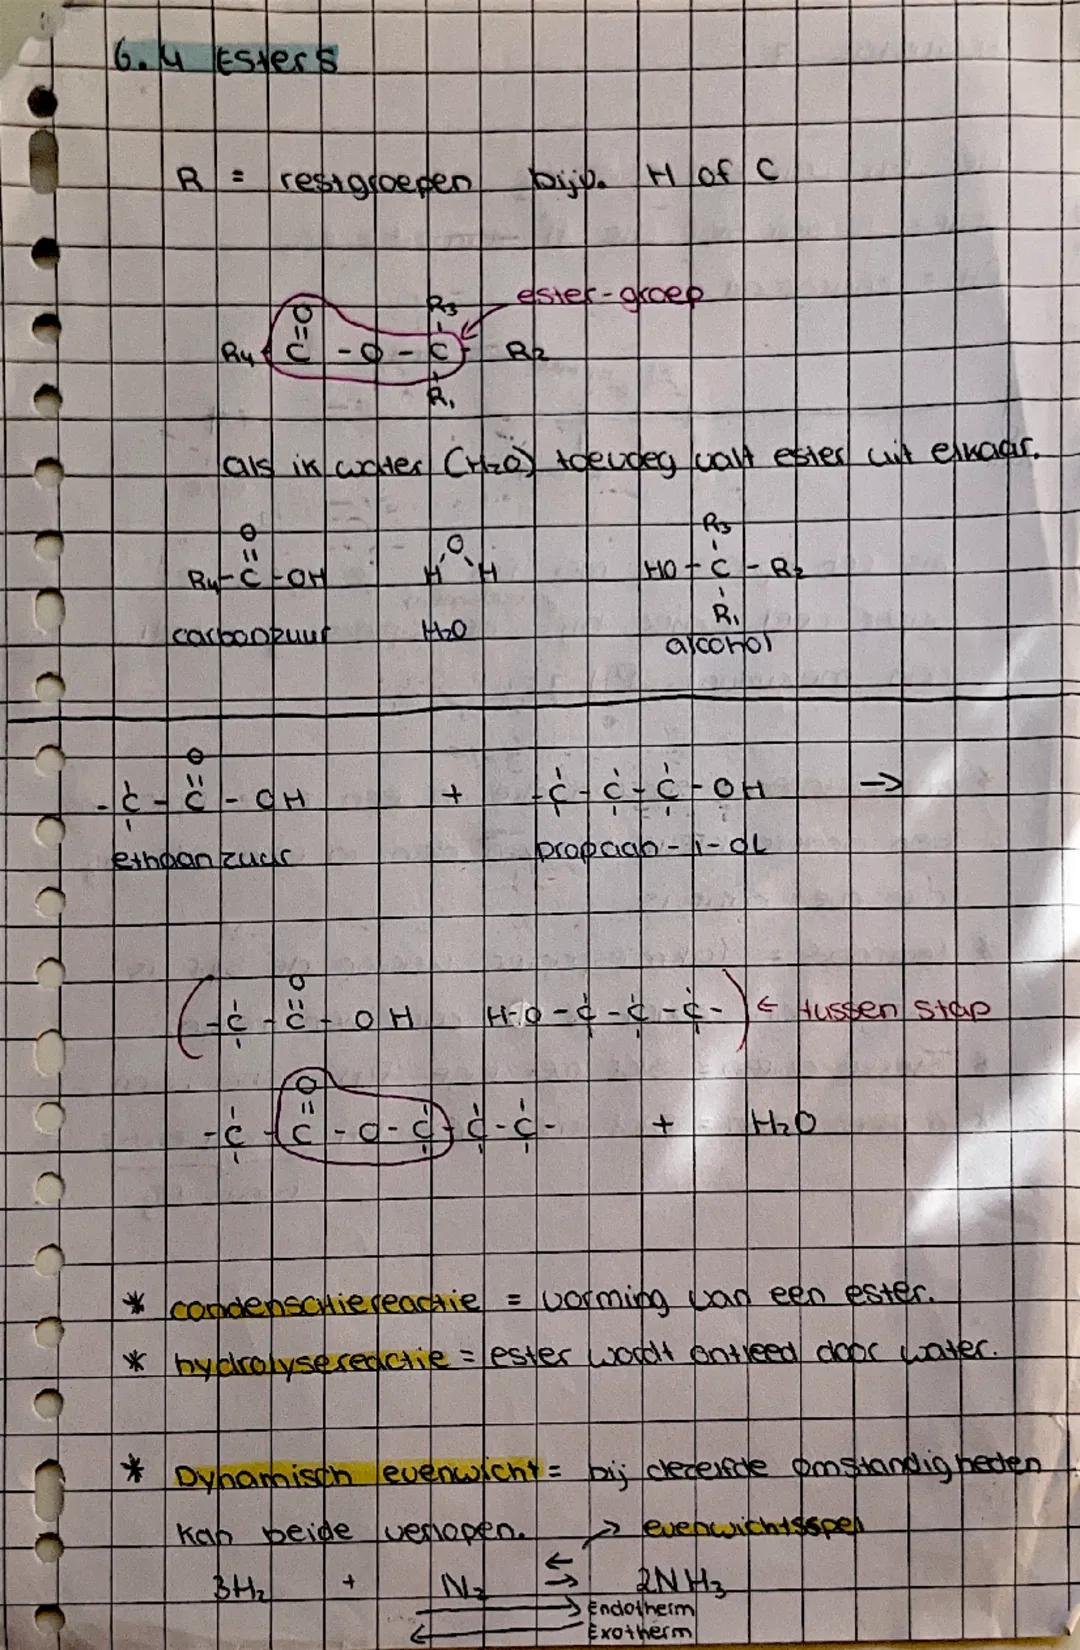 6.4 Esters
R = restgroepen bijv. H of C
ester-groep
O R3
R4 C - O - C R2
R1
als ik water (H2O) toevoeg valt ester uit elkaar.
O O R3
R4-C-OH H H HO-C-R2
R1
carboonzuur H2O alcohol
O
-C-C-OH + -C-C-C-OH →
ethaanzuur propaan-1-ol
O
(-C-C-OH H-O-C-C-C-) ← tussen stap
O
-C-C-O-C-C-C- + H2O
* condensatiereactie = vorming van een ester.
* hydrolysereactie = ester wordt ontleed door water.
* Dynamisch evenwicht = bij dezelfde omstandigheden
kan beide verlopen. → evenwichtsspel
3H2 + N2 ⇆ 2NH3
→ Endotherm
← Exotherm